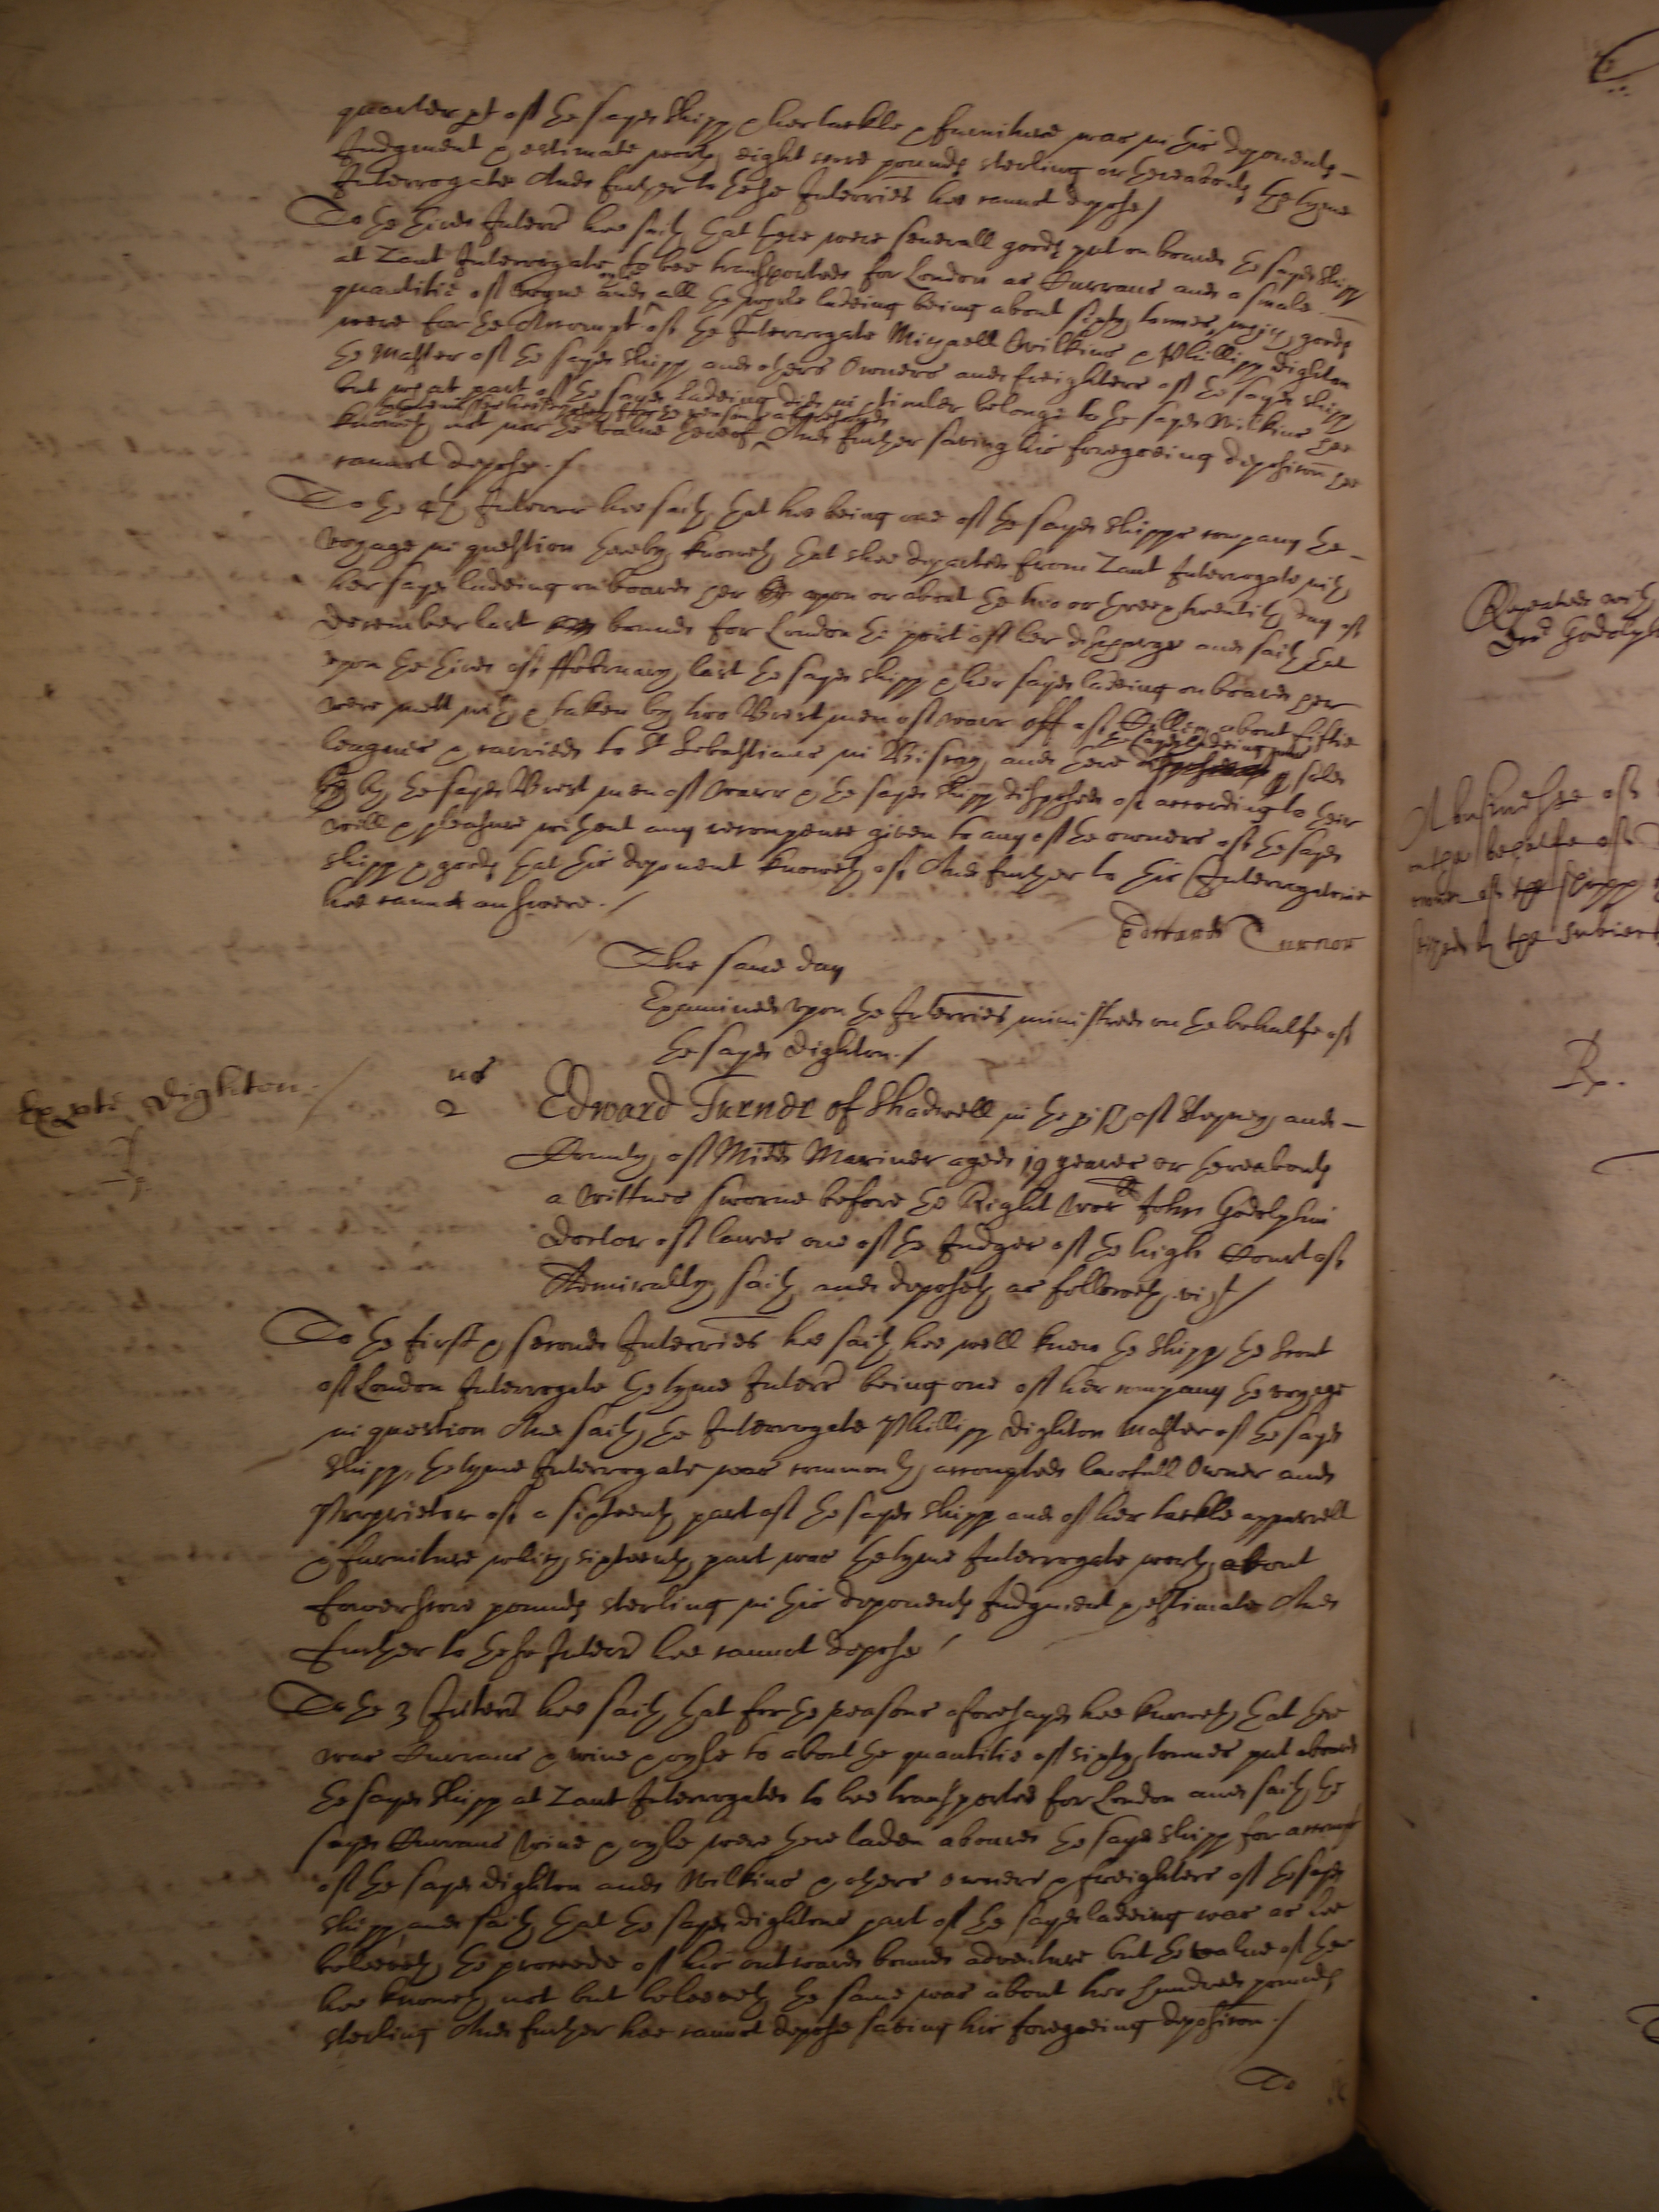 quarter pt of the sayd Shipp & her tackle & furniture was in his deponents
Judgment & estimate worth eight score pounds sterling or thereabouts the tyme
Interrogate And further to these Interries hee cannot depose /
To the third Interr hee saith that there were severall goods put on board the sayd shipp
at Zant Interrogate to bee transported for London as Currans and a smale
quantitie of wyne and all the whole ladeing being about sixty tonnes, which goods
were for the Accompt of the Interrogate Michaell Wilkins & Phillipp Dighton
the Master of the sayd shipp and others Owners and freighters of the sayd shipp
but what part of the sayd ladeing did in particular belonge to the sayd Wilkins hee
knoweth not nor the value thereof And further saving his foregoeing deposicon hee
cannot depose. /
To the 4th Interrie hee saith that hee being one of the sayd shipps company the
voyage in question thereby knoweth that shee departed from Zant Interrogate with
her sayd ladeing on board her upon or about the two or three & twentith day of
December last bound for London the port of her discharge and saith that
upon the third of ffebruary last the sayd shipp & her sayd ladeing on board her
were mett with & taken by two Brest men of warr off of Scilly about fiftie
leagues & carried to St Sebastians in Biscay and there the sayd ladeing was sold
by the sayd Brest men of Warr & the sayd shipp disposed of according to their
will & pleasure without any recompence given to any of the owners of the sayd
shipp & goods that this deponent knoweth of And further to this Interrogatorie
hee cannot answere. /
Edward Turnor
The same day
Examined upon the Interries ministred on the behalfe of
the sayd Dighton. /
Ex pte Dighton. /
us
2
Edward Turner of Shadwell in the pish of Stepney and
County of Midd Mariner aged 19 yeares or thereabouts
a wittnes sworne before the Right Worll John Godolphin
Doctor of lawes one of the Judges of the high Court of
Admiralty saith and deposeth as followeth vizt /
To the first & second Interries hee saith hee well knew the shipp the Scout
of London Interrogate the tyme Interr being one of her company the voyage
in question And saith the Interrogate Phillipp Dighton Master of the sayd
shipp, the tyme Interrogate was commonly accompted lawfull Owner and
Proprietor of a sixteenth part of the sayd shipp and of her tackle apparrell
& furniture which sixteenth part was the tyme Interrogate worth about
fowerscore pounds sterling in his deponents Judgment & estimate And
further to these Interr hee cannot depose /
To the 3 Interr hee saith that for the reasons aforesayd hee knoweth that there
was Currans & wine & oyle to about the quantitie of sixty tonnes put aboard
the sayd shipp at Zant Interrogate to bee transported for London and saith the
sayd Currans wine & oyle were there laden aboard the sayd shipp for accompt
of the sayd Dighton and Wilkins & others owners & freighters of the sayd
shipp and saith that the sayd Dightons part of the sayd ladeing was as hee
beleeveth the proceede of his outward bound adventure but the value of the
hee knoweth not but beleeveth the same was about two hundred pounds
sterling And further hee cannot depose saving his foregoeing deposicon. /
To
Repeated with
Dr Godolph
A businesse of
on the behalfe of
owner of the shipp
seized by the subiect
Rp.